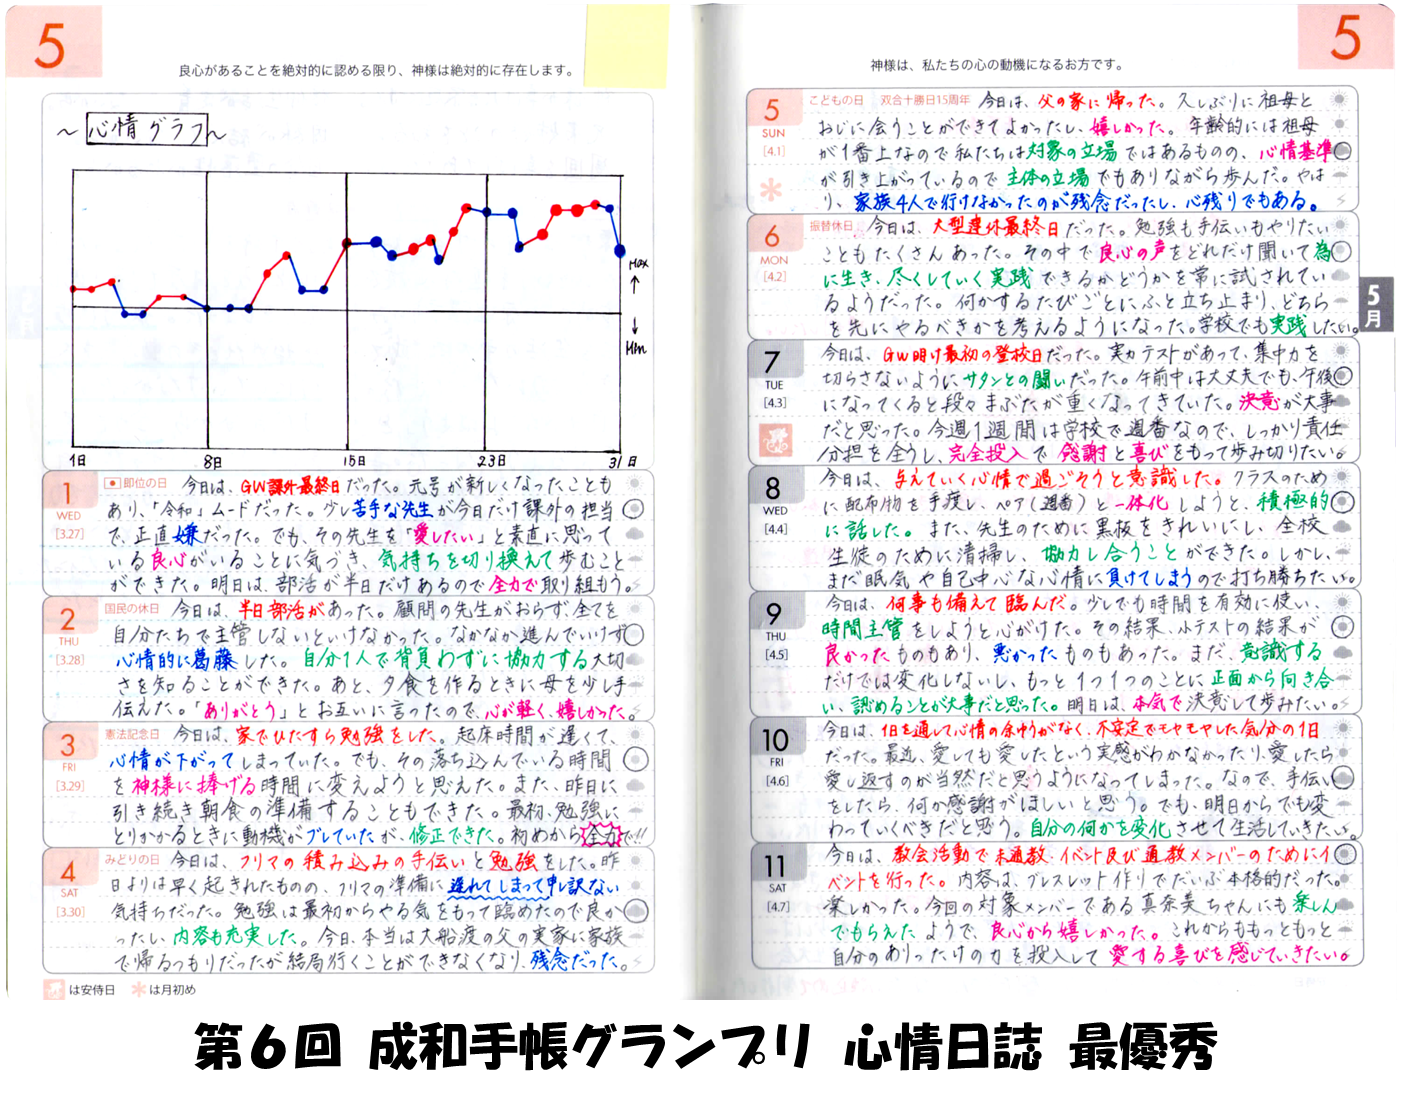 5
良心があることを絶対的に認める限り、神様は絶対的に存在します。
～心情グラフ～
Max
↑
↓
Min
1日 8日 15日 23日 31日
1 WED [3.27] 即位の日 今日は、GW課外最終日だった。元号が新しくなったことも
あり、「令和」ムードだった。少し苦手な先生が今日だけ課外の担当
で、正直嫌だった。でも、その先生を「愛したい」と素直に思って
いる良心がいることに気づき、気持ちを切り換えて歩むこと
ができた。明日は、部活が半日だけあるので全力で取り組もう。
2 THU [3.28] 国民の休日 今日は、半日部活があった。顧問の先生がおらず全てを
自分たちで主管しないといけなかった。なかなか進んでいけず
心情的に葛藤した。自分1人で背負わずに協力する大切
さを知ることができた。あと、夕食を作るときに母を少し手
伝えた。「ありがとう」とお互いに言ったので、心が軽く、嬉しかった。
3 FRI [3.29] 憲法記念日 今日は、家でひたすら勉強をした。起床時間が遅くて、
心情が下がってしまっていた。でも、その落ち込んでいる時間
を神様に捧げる時間に変えようと思えた。また、昨日に
引き続き朝食の準備することもできた。最初、勉強に
とりかかるときに動機がブレていたが、修正できた。初めから全力で!!
4 SAT [3.30] みどりの日 今日は、フリマの積み込みの手伝いと勉強をした。昨
日よりは早く起きれたものの、フリマの準備に遅れてしまって申し訳ない
気持ちだった。勉強は最初からやる気をもって臨めたので良か
ったし、内容も充実した。今日、本当は大船渡の父の実家に家族
で帰るつもりだったが結局行くことができなくなり、残念だった。
は安侍日 ＊は月初め
5
神様は、私たちの心の動機になるお方です。
5 SUN [4.1] こどもの日 双合十勝日15周年 今日は、父の家に帰った。久しぶりに祖母と
おじに会うことができてよかったし、嬉しかった。年齢的には祖母
が1番上なので私たちは対象の立場ではあるものの、心情基準
が引き上がっているので主体の立場でもありながら歩んだ。やは
り、家族4人で行けなかったのが残念だったし、心残りでもある。
6 MON [4.2] 振替休日 今日は、大型連休最終日だった。勉強も手伝いもやりたい
こともたくさんあった。その中で良心の声をどれだけ聞いて為
に生き、尽くしていく実践できるかどうかを常に試されてい
るようだった。何かするたびごとにふと立ち止まり、どちら
を先にやるべきかを考えるようになった。学校でも実践したい。
5月
7 TUE [4.3] 今日は、GW明け最初の登校日だった。実力テストがあって、集中力を
切らさないようにサタンとの闘いだった。午前中は大丈夫でも、午後
になってくると段々まぶたが重くなってきていた。決意が大事
だと思った。今週1週間は学校で週番なので、しっかり責任
分担を全うし、完全投入で感謝と喜びをもって歩み切りたい。
8 WED [4.4] 今日は、与えていく心情で過ごそうと意識した。クラスのため
に配布物を手渡し、ペア(週番)と一体化しようと、積極的
に話した。また、先生のために黒板をきれいにし、全校
生徒のために清掃し、協力し合うことができた。しかし、
まだ眠気や自己中心な心情に負けてしまうので打ち勝ちたい。
9 THU [4.5] 今日は、何事も備えて臨んだ。少しでも時間を有効に使い、
時間主管をしようと心がけた。その結果、小テストの結果が
良かったものもあり、悪かったものもあった。まだ、意識する
だけでは変化しないし、もっと1つ1つのことに正面から向き合
い、認めることが大事だと思った。明日は、本気で決意して歩みたい。
10 FRI [4.6] 今日は、1日を通して心情の余ゆうがなく、不安定でモヤモヤした気分の1日
だった。最近、愛しても愛したという実感がわかなかったり、愛したら
愛し返すのが当然だと思うようになってしまった。なので、手伝い
をしたら、何か感謝がほしいと思う。でも、明日からでも変
わっていくべきだと思う。自分の何かを変化させて生活していきたい。
11 SAT [4.7] 今日は、教会活動で未通教、イベント及び通教メンバーのためにイ
ベントを行った。内容は、ブレスレット作りでだいぶ本格的だった。
楽しかった。今回の対象メンバーである真奈美ちゃんにも楽しん
でもらえたようで、良心から嬉しかった。これからももっともっと
自分のありったけの力を投入して愛する喜びを感じていきたい。
第6回 成和手帳グランプリ 心情日誌 最優秀